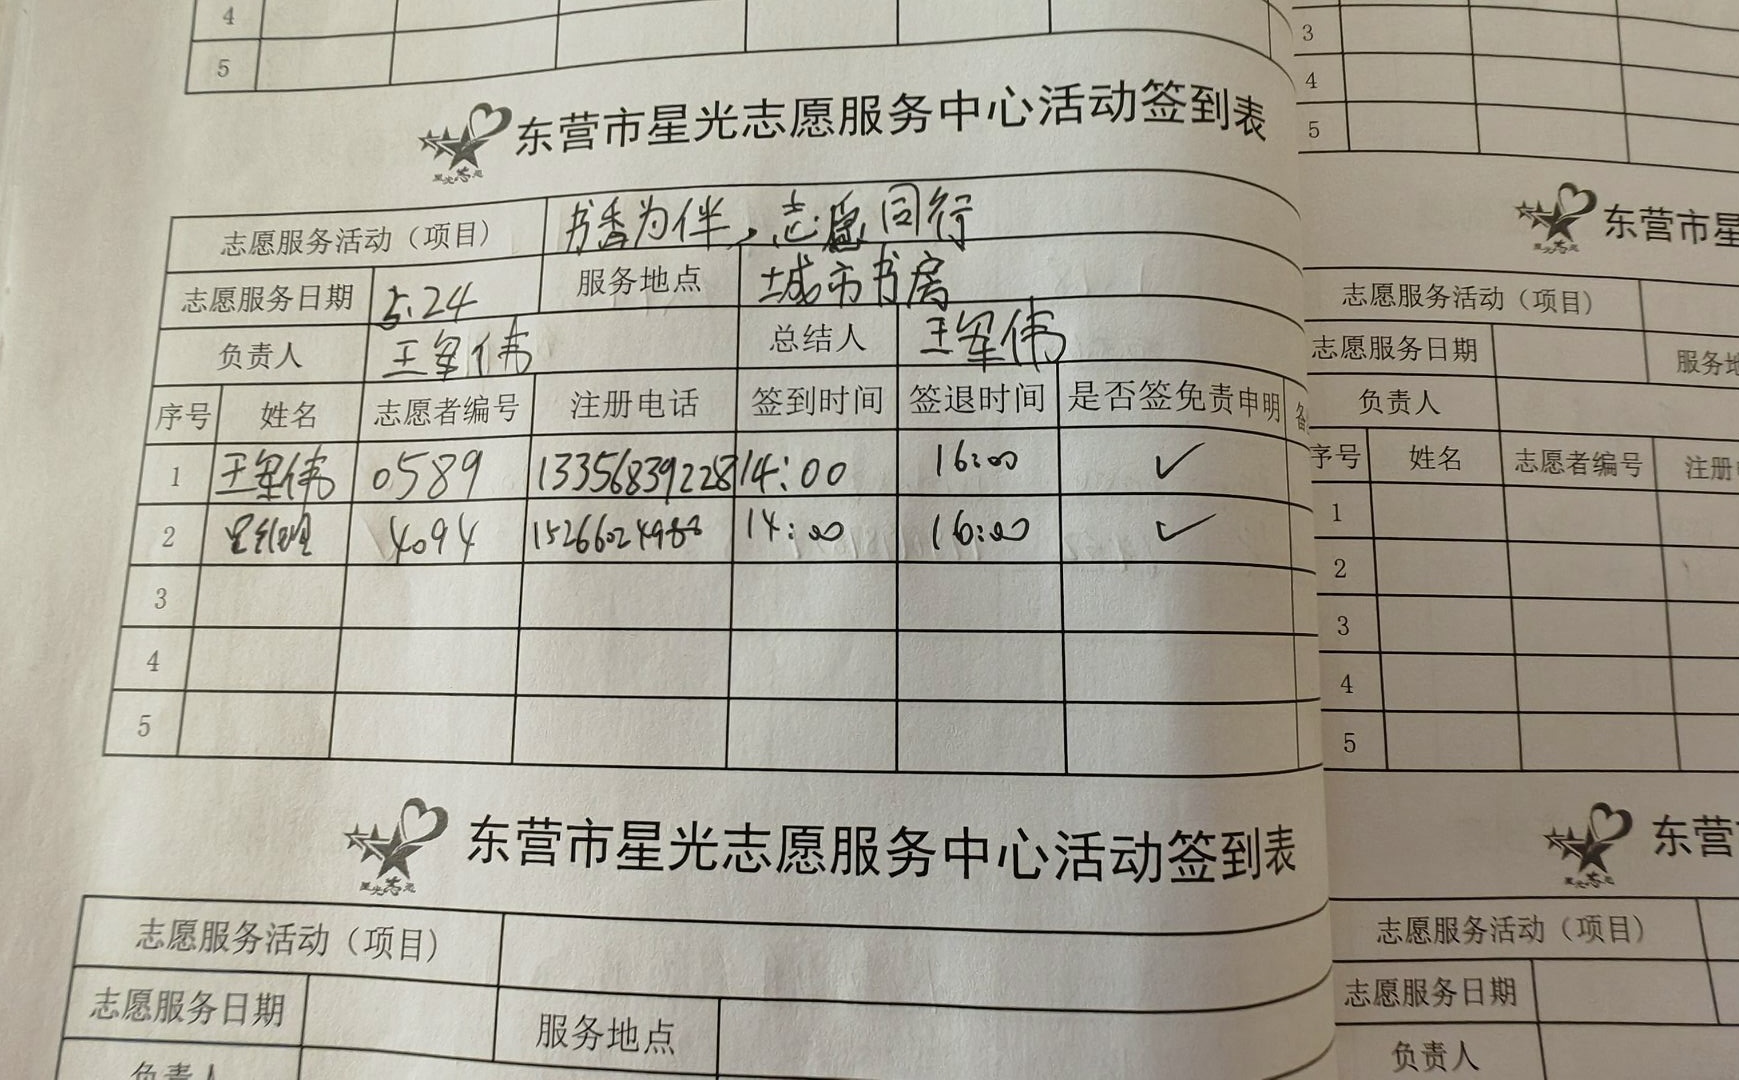 4
5
东营市星光志愿服务中心活动签到表
星光志愿
志愿服务活动（项目） 书香为伴，志愿同行
志愿服务日期 5.24 服务地点 城市书房
负责人 王军伟 总结人 王军伟
序号 姓名 志愿者编号 注册电话 签到时间 签退时间 是否签免责申明 备
1 王军伟 0589 13356839228 14:00 16:00 ✓
2 4094 14:00 16:00 ✓
3
4
5
东营市星光志愿服务中心活动签到表
星光志愿
志愿服务活动（项目）
志愿服务日期 服务地点
负责人
3
4
5
东营市星
星光志愿
志愿服务活动（项目）
志愿服务日期 服务地
负责人
序号 姓名 志愿者编号 注册电
1
2
3
4
5
东营
星光志愿
志愿服务活动（项目）
志愿服务日期
负责人